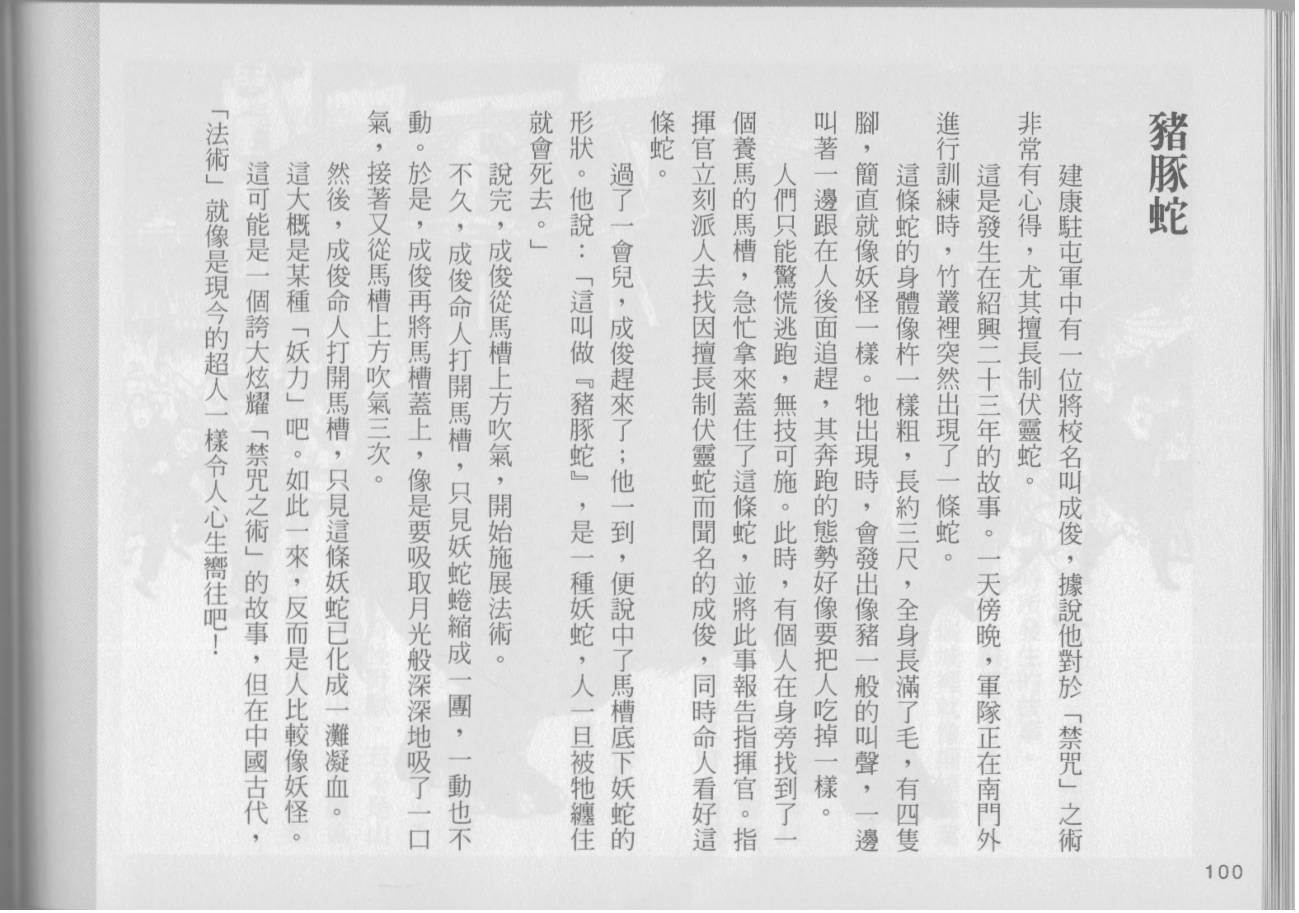 豬豚蛇
建康駐屯軍中有一位將校名叫成俊，據說他對於「禁咒」之術
非常有心得，尤其擅長制伏靈蛇。
這是發生在紹興二十三年的故事。一天傍晚，軍隊正在南門外
進行訓練時，竹叢裡突然出現了一條蛇。
這條蛇的身體像杵一樣粗，長約三尺，全身長滿了毛，有四隻
腳，簡直就像妖怪一樣。牠出現時，會發出像豬一般的叫聲，一邊
叫著一邊跟在人後面追趕，其奔跑的態勢好像要把人吃掉一樣。
人們只能驚慌逃跑，無技可施。此時，有個人在身旁找到了一
個養馬的馬槽，急忙拿來蓋住了這條蛇，並將此事報告指揮官。指
揮官立刻派人去找因擅長制伏靈蛇而聞名的成俊，同時命人看好這
條蛇。
過了一會兒，成俊趕來了；他一到，便說中了馬槽底下妖蛇的
形狀。他說：「這叫做『豬豚蛇』，是一種妖蛇，人一旦被牠纏住
就會死去。」
說完，成俊從馬槽上方吹氣，開始施展法術。
不久，成俊命人打開馬槽，只見妖蛇蜷縮成一團，一動也不
動。於是，成俊再將馬槽蓋上，像是要吸取月光般深深地吸了一口
氣，接著又從馬槽上方吹氣三次。
然後，成俊命人打開馬槽，只見這條妖蛇已化成一灘凝血。
這大概是某種「妖力」吧。如此一來，反而是人比較像妖怪。
這可能是一個誇大炫耀「禁咒之術」的故事，但在中國古代，
「法術」就像是現今的超人一樣令人心生嚮往吧！
100